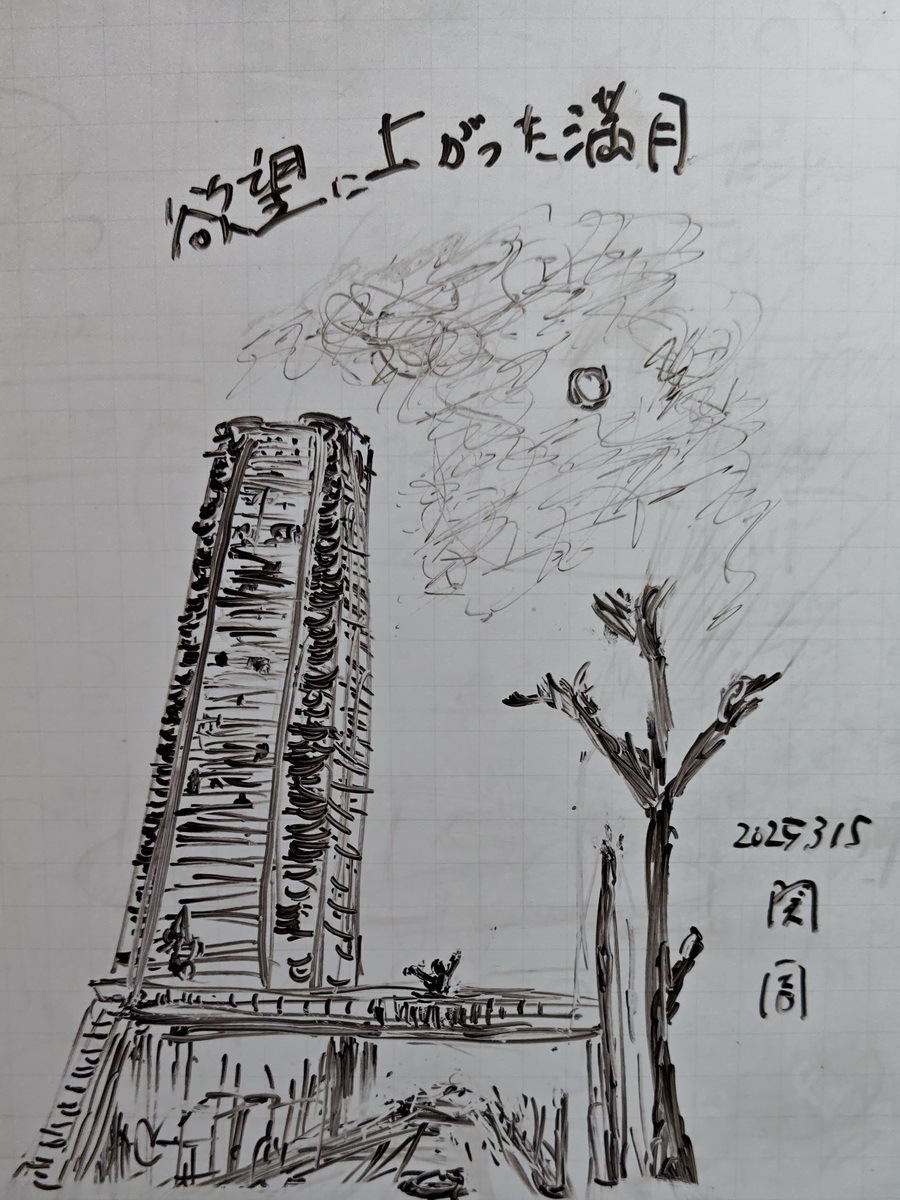 欲望に上がった満月
2025315
関
周